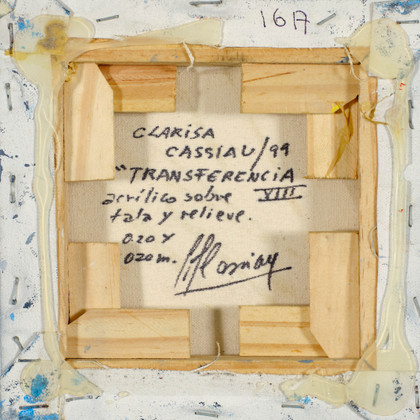 16A
CLARISA
CASSIAU/99
"TRANSFERENCIA
VIII
acrílico sobre
tala y relieve.
0.20 x
020 m.